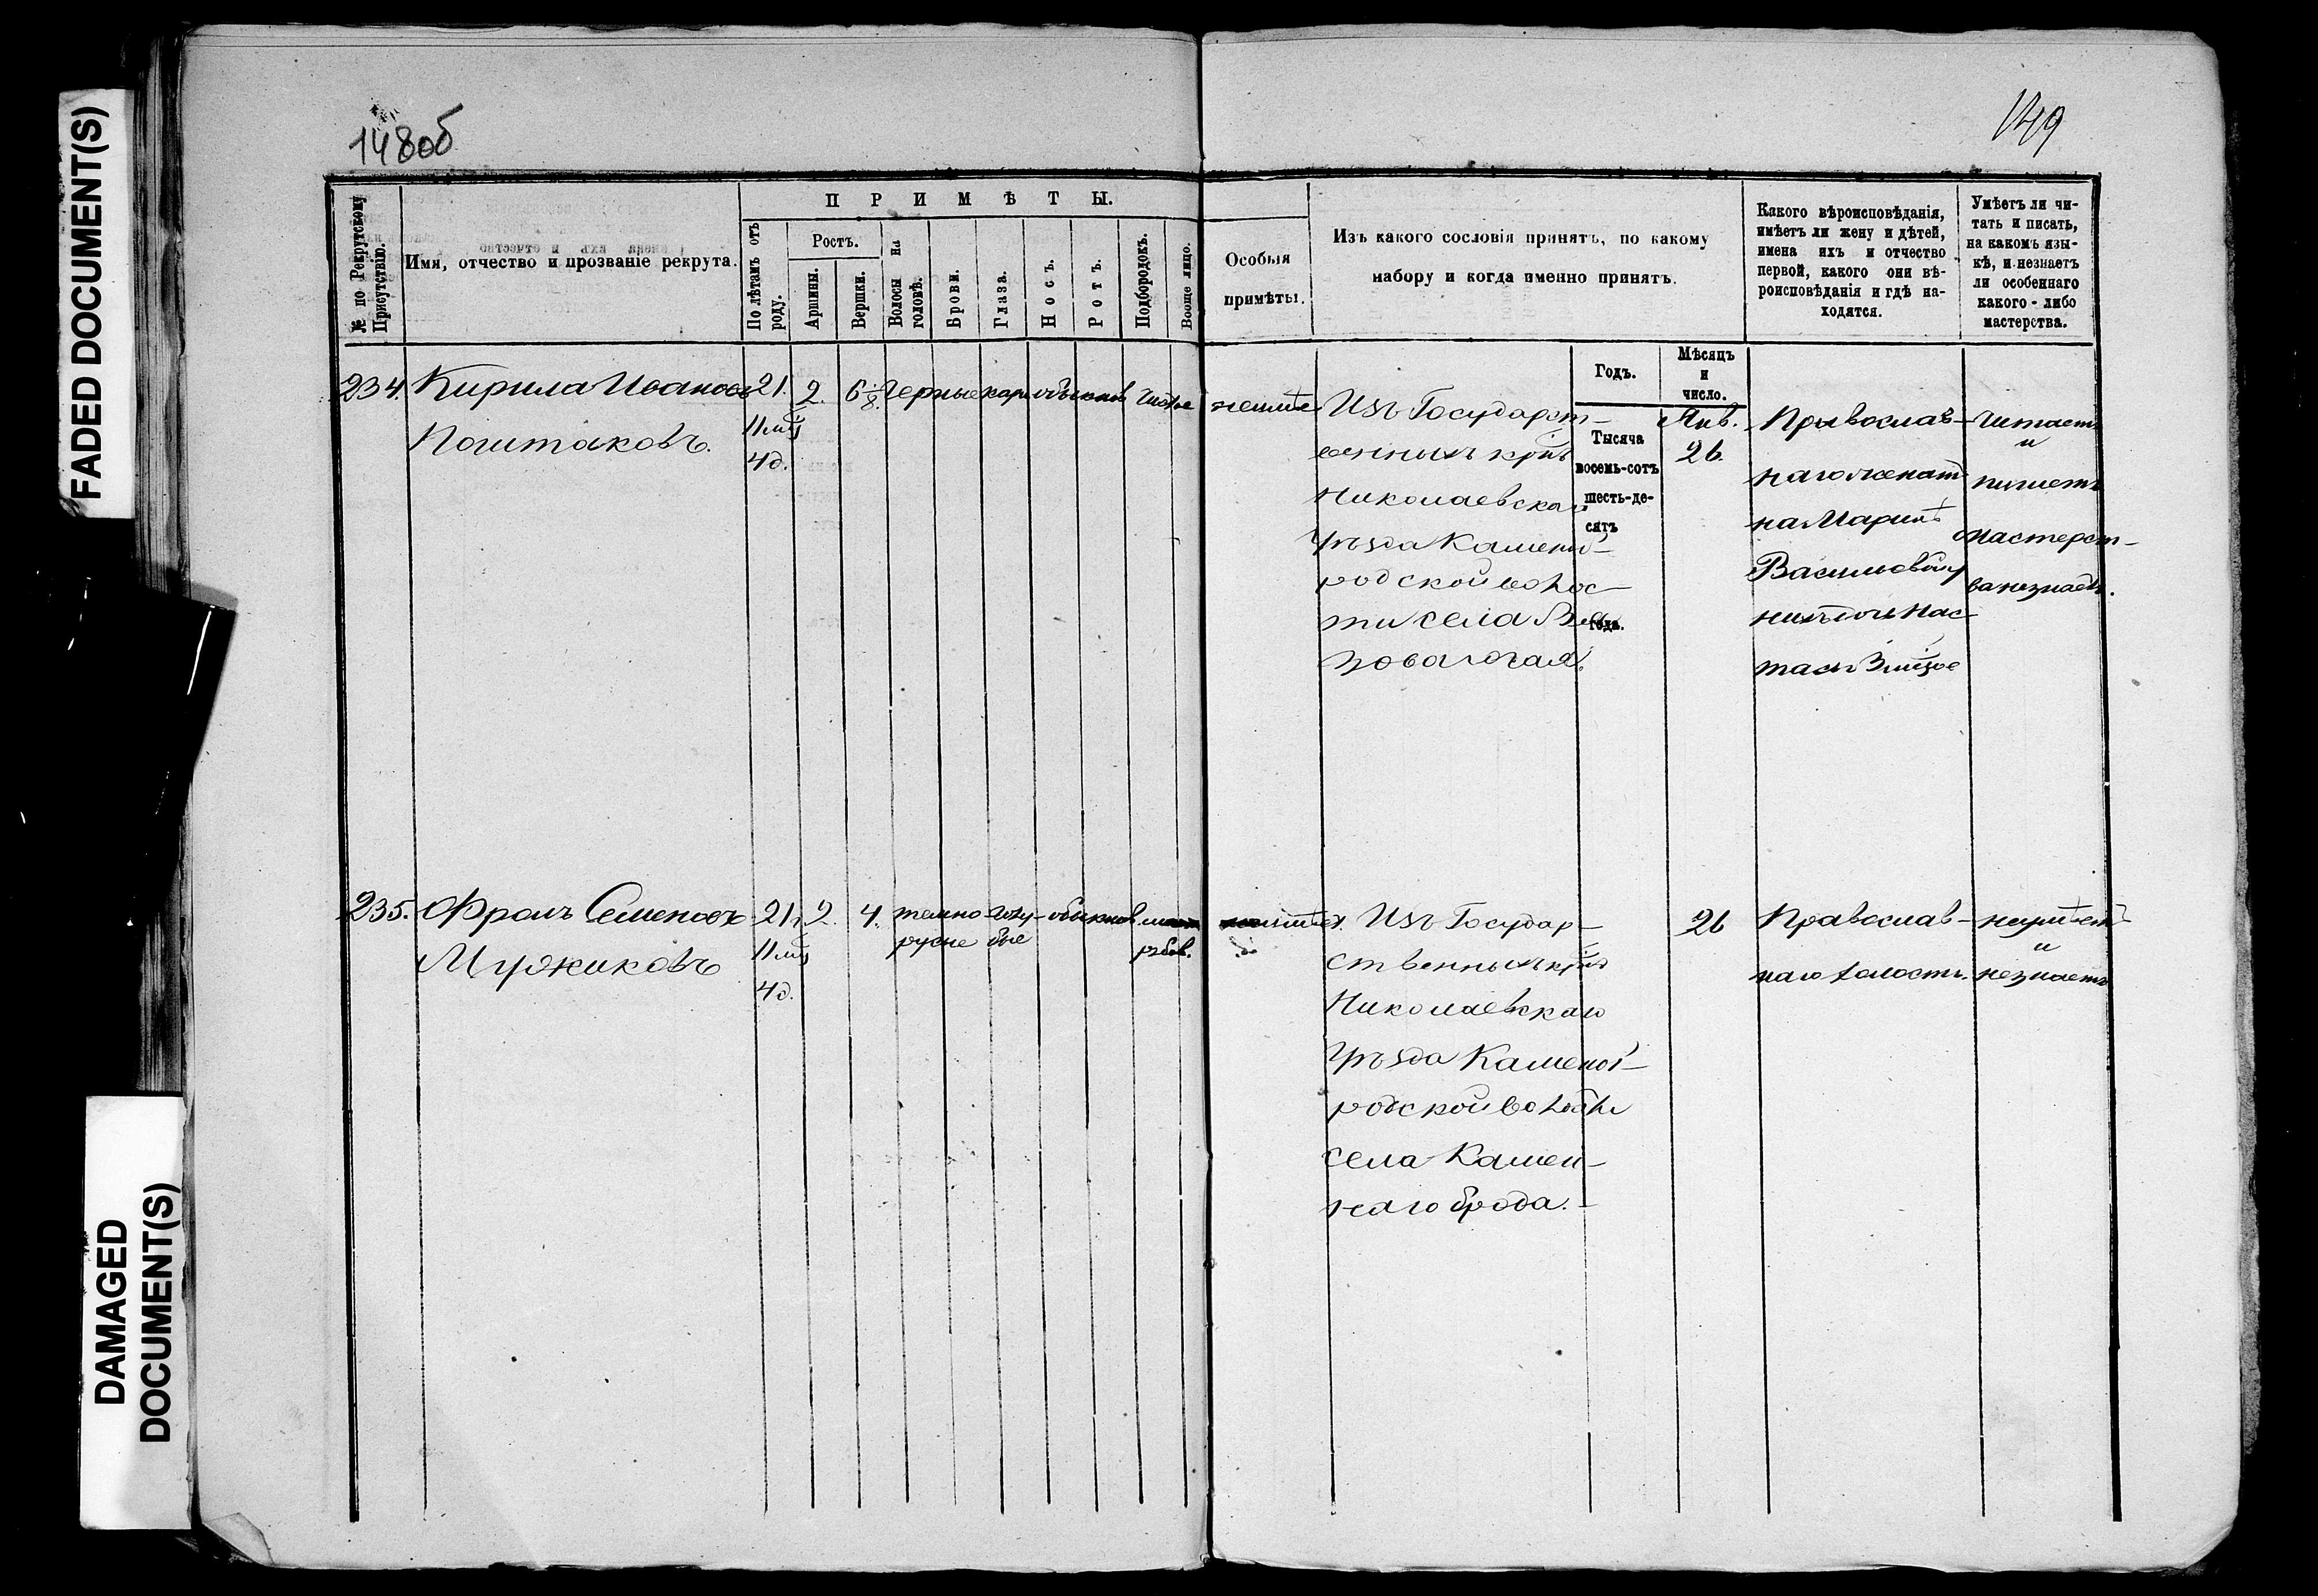 FADED DOCUMENT(S)
DAMAGED
DOCUMENT(S)
148 об
149
№ по Рекрутскому
Присутствію.
Имя, отчество и прозваніе рекрута.
ПРИМѢТЫ.
По лѣтамъ отъ
роду.
Ростъ.
Аршины.
Вершки.
Волосы на
головѣ.
Брови.
Глаза.
Носъ.
Ротъ.
Подбородокъ.
Вооще лицо.
Особыя
примѣты.
Изъ какого сословія принятъ, по какому
набору и когда именно принятъ.
Годъ.
Мѣсяцъ
и
число.
Какого вѣроисповѣданія,
имѣетъ ли жену и дѣтей,
имена ихъ и отчество
первой, какого они вѣ-
роисповѣданія и гдѣ на-
ходятся.
Умѣетъ ли чи-
тать и писать,
на какомъ язы-
кѣ, и незнаетъ
ли особеннаго
какого-либо
мастерства.
234. Кирила Ивановъ
21. 2. 6 1/8. черные кари обыкнов чистое
Поштаковъ.
11 мц
4 д.
Изъ Государст-
венныхъ крнъ
Николаевскаго
Уѣзда Каменно-
родской волос-
ти села
Тысяча
восемь-сотъ
шесть-де-
сятъ
года.
Янв.
26.
Православ-
наго женатъ
на Маринѣ
Васильевой у
нихъ дочь Нас-
тасья
читаетъ
и
пишетъ
мастерст-
ва незнаетъ.
235. Фролъ Семеновъ
21. 2. 4. темно- голу- обыкнов.
русые бые рябов.
Мужиковъ
11 мц
4 д.
Изъ Государ-
ственныхъ крнъ
Николаевскаго
Уѣзда Каменно-
родской волости
села Камен-
наго брода.-
26
Православ-
наго холостъ.
неумѣетъ
и
незнаетъ